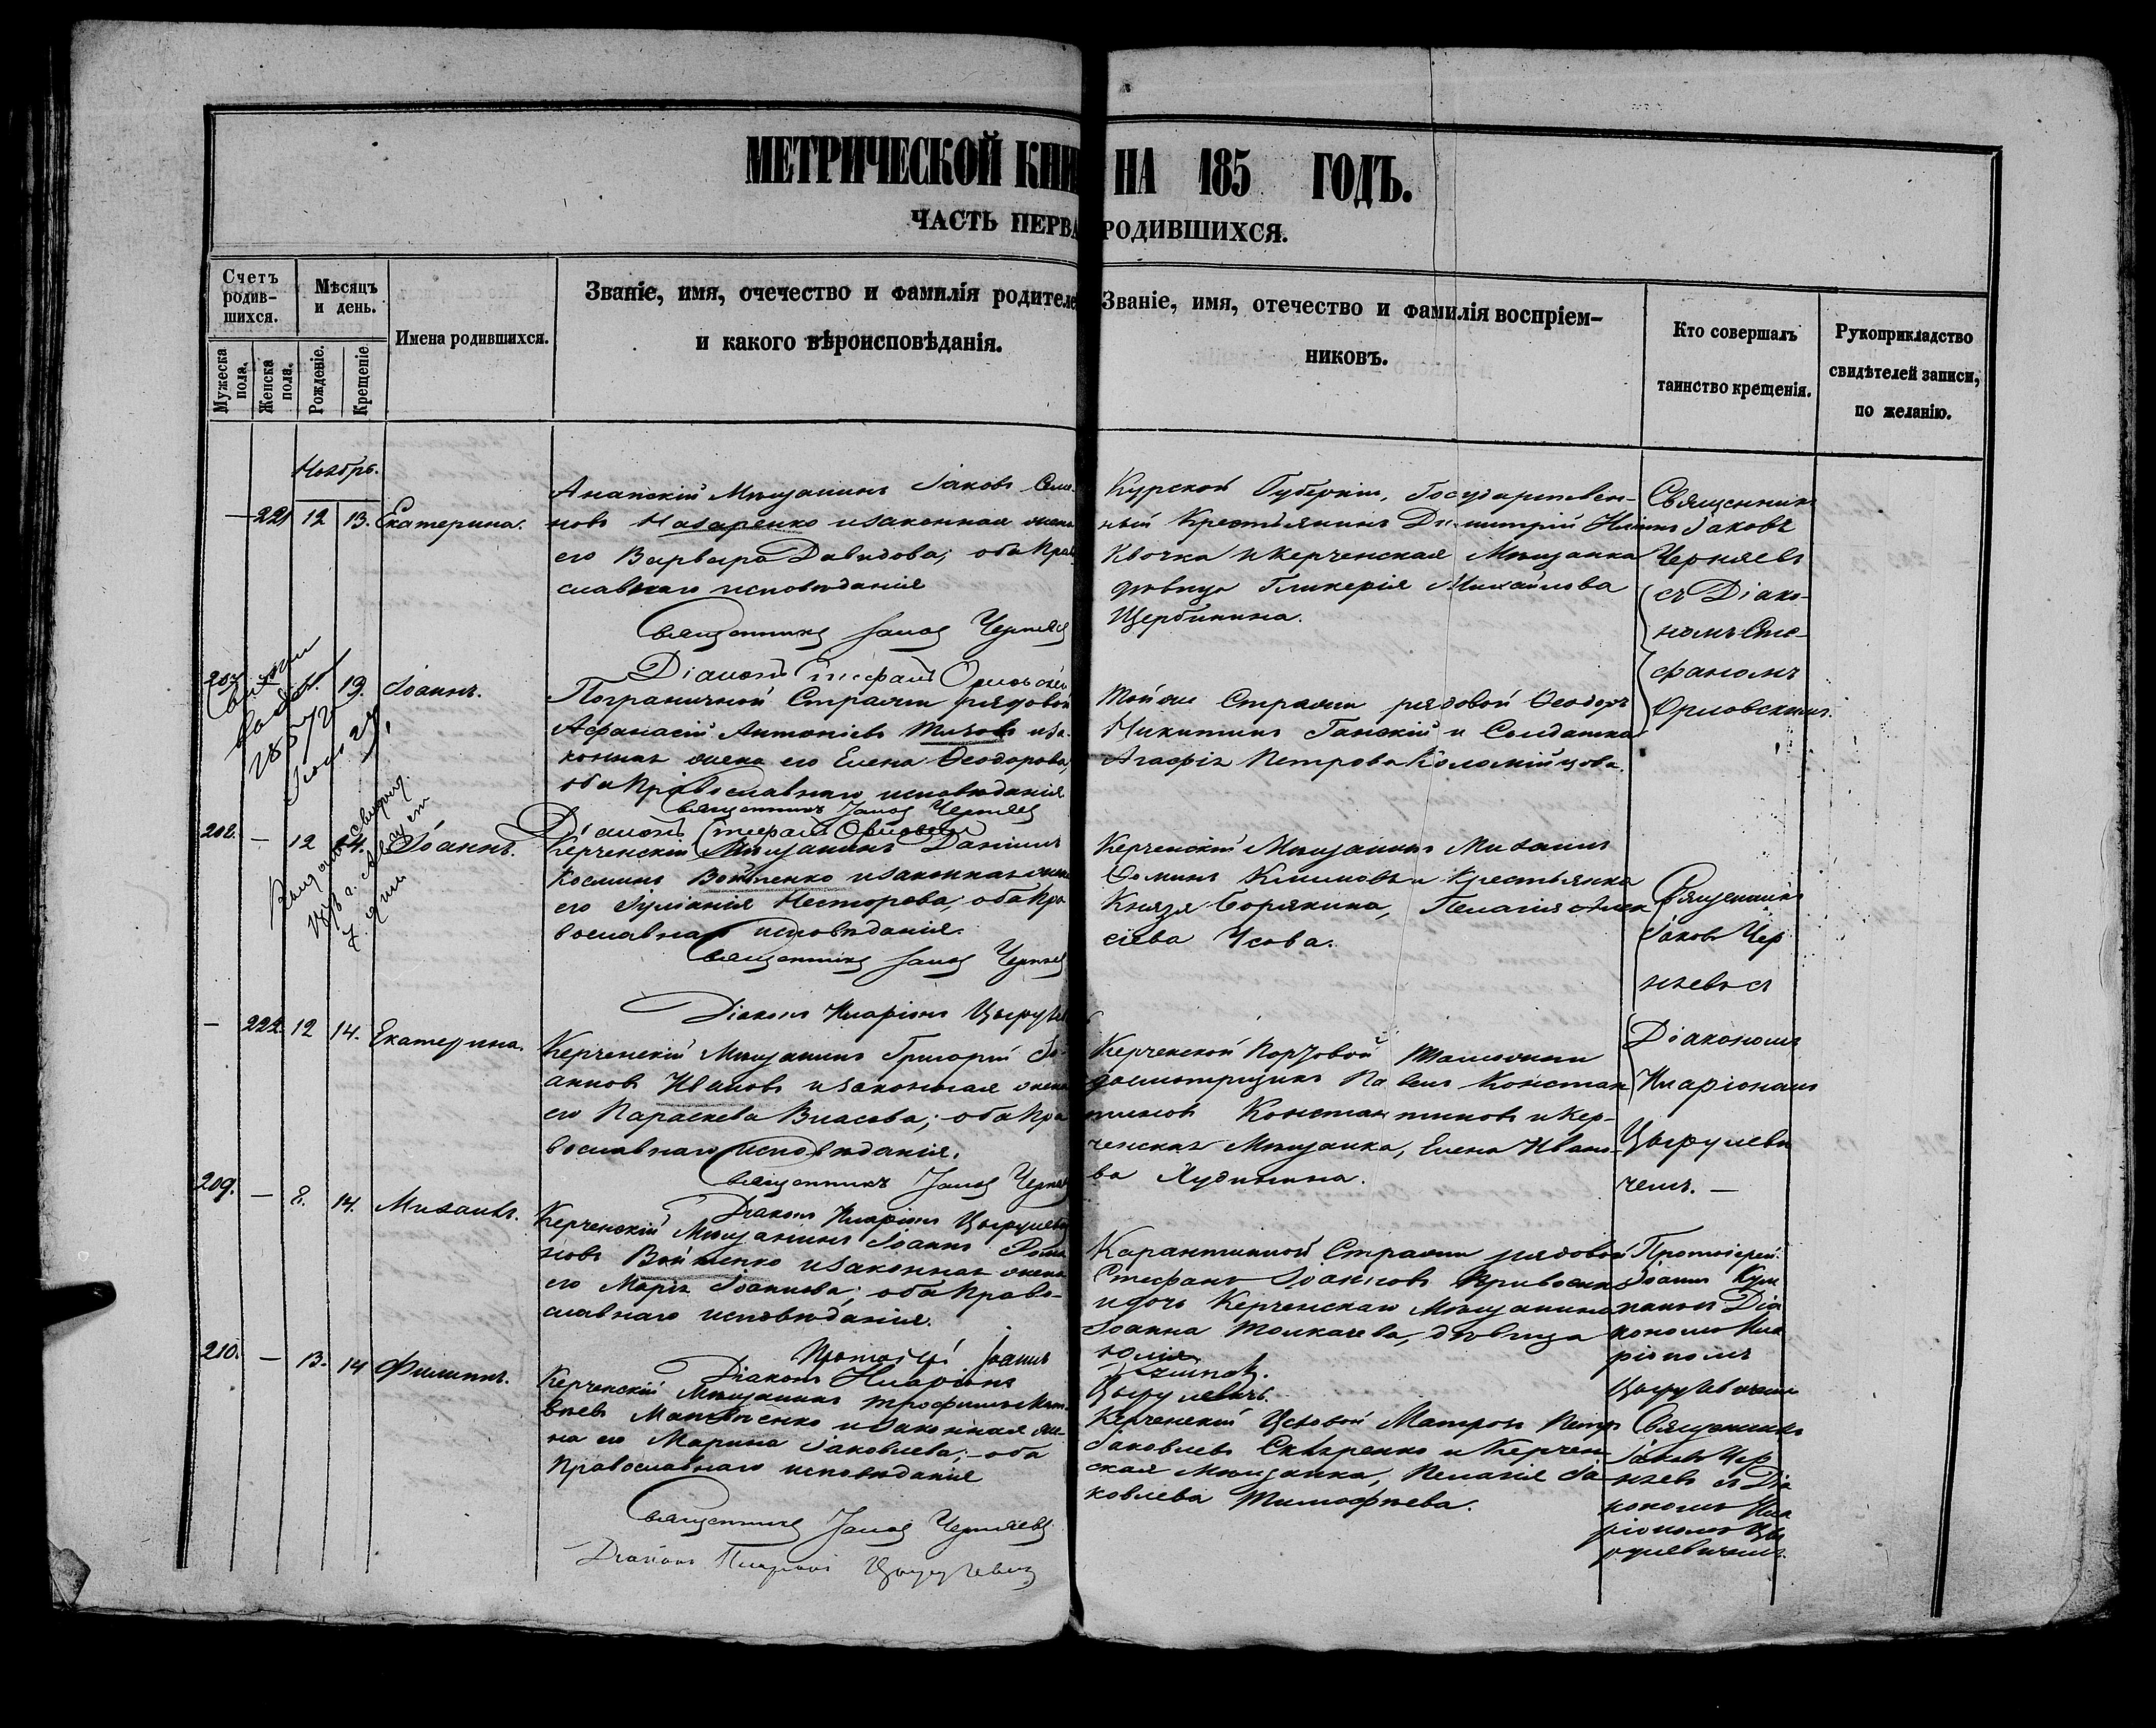 МЕТРИЧЕСКОЙ КНИ НА 185 ГОДЪ.
ЧАСТЬ ПЕРВА РОДИВШИХСЯ.
Счетъ родив-шихся.
Мужеска пола.
Женска пола.
Мѣсяцъ и день.
Рожденіе.
Крещеніе.
Имена родившихся.
Званіе, имя, очечество и фамилія родителе
и какого вѣроисповѣданія.
Званіе, имя, отечество и фамилія воспріем-
никовъ.
Кто совершалъ
таинство крещенія.
Рукоприкладство
свидѣтелей записи,
по желанію.
Ноябрь.
— 221 12 13. Екатерина.
Анапскій Мѣщанинъ Іаковъ Семе-
новъ Назаренко и законная жена
его Варвара Давидова; оба Прав
славнаго исповѣданія
Священникъ Іаковъ Черняев
Діаконъ Стефанъ Орловскій
Курской Губерніи, Государствен-
ный Крестьянинъ Димитрій
Квочка и Керченская Мѣщанка
дѣвица Гликерія Михайлова
Щербинина.
Священникъ
Іаковъ
Черняевъ
съ Діако-
номъ Сте-
фаномъ
Орловскимъ.
207. 19. Іоаннъ.
Пограничной Стражи рядовой
Афанасій Антоніевъ и за-
конная жена его Елена Ѳеодорова,
оба Православнаго исповѣданія
Священникъ Іаковъ Черняев
Діаконъ Стефанъ Орловскій
Той же Стражи рядовой Ѳеодоръ
Никитинъ Ганскій и Солдатка
Агафія Петрова Коломійцова.
208. — 12 14. Іоаннъ.
Керченскій Мѣщанинъ Даніилъ
Косминъ Войтенко и законная жена
его Іуліанія Несторова; оба Пра
вославнаго исповѣданія.
Священникъ Іаковъ Черняев
Діаконъ Иларіонъ Цыруле
Керченскій Мѣщанинъ Михаилъ
Ѳоминъ Климовъ и Крестьянка
Князя Горякина, Пелагія Алек
сіева Усова.
Священникъ
Іаковъ Чер
няевъ съ
Діакономъ
Иларіономъ
Цырулеви
чемъ. —
— 222. 12 14. Екатерина.
Керченскій Мѣщанинъ Григорій Іо-
анновъ Ивановъ и законная жена
его Параскева Власова; оба Пра
вославнаго исповѣданія.
Священникъ Іаковъ Черняев
Діаконъ Иларіонъ Цырулев
Керченской Портовой Таможни
досмотрщикъ Павелъ Констан
тиновъ Константиновъ и Кер-
ченская Мѣщанка, Елена Ивано-
ва Худинина.
209. — 8. 14. Михаилъ.
Керченскій Мѣщанинъ Іоаннъ Рома
новъ Войтенко и законная жена
его Марія Іоаннова; оба Право-
славнаго исповѣданія.
Протоіерей Іоаннъ
Діаконъ Иларіонъ
Цырулевичъ.
Карантинной Стражи рядовой
Стефанъ Іоанновъ
и дочь Керченскаго Мѣщанина
Іоанна Толкачева, дѣвица
Юлія
Протоіерей
Іоаннъ
Діа
кономъ Ила
ріономъ
Цырулевичемъ
210. — 13. 14 Филиппъ.
Керченскій Мѣщанинъ Трофимъ Мат-
вѣевъ Матвѣенко и законная же-
на его Марина Іаковлева; — оба
Православнаго исповѣданія
Священникъ Іаковъ Черняевъ
Діаконъ Иларіонъ Цырулевичъ
Керченскій Цеховой Матрос Петр
Іаковлевъ Скляренко и Керчен
ская Мѣщанка, Пелагія Іа
ковлева Тимофѣева.
Священникъ
Іаковъ Чер
няевъ съ Діа
кономъ Ила
ріономъ Цы
рулевичемъ.